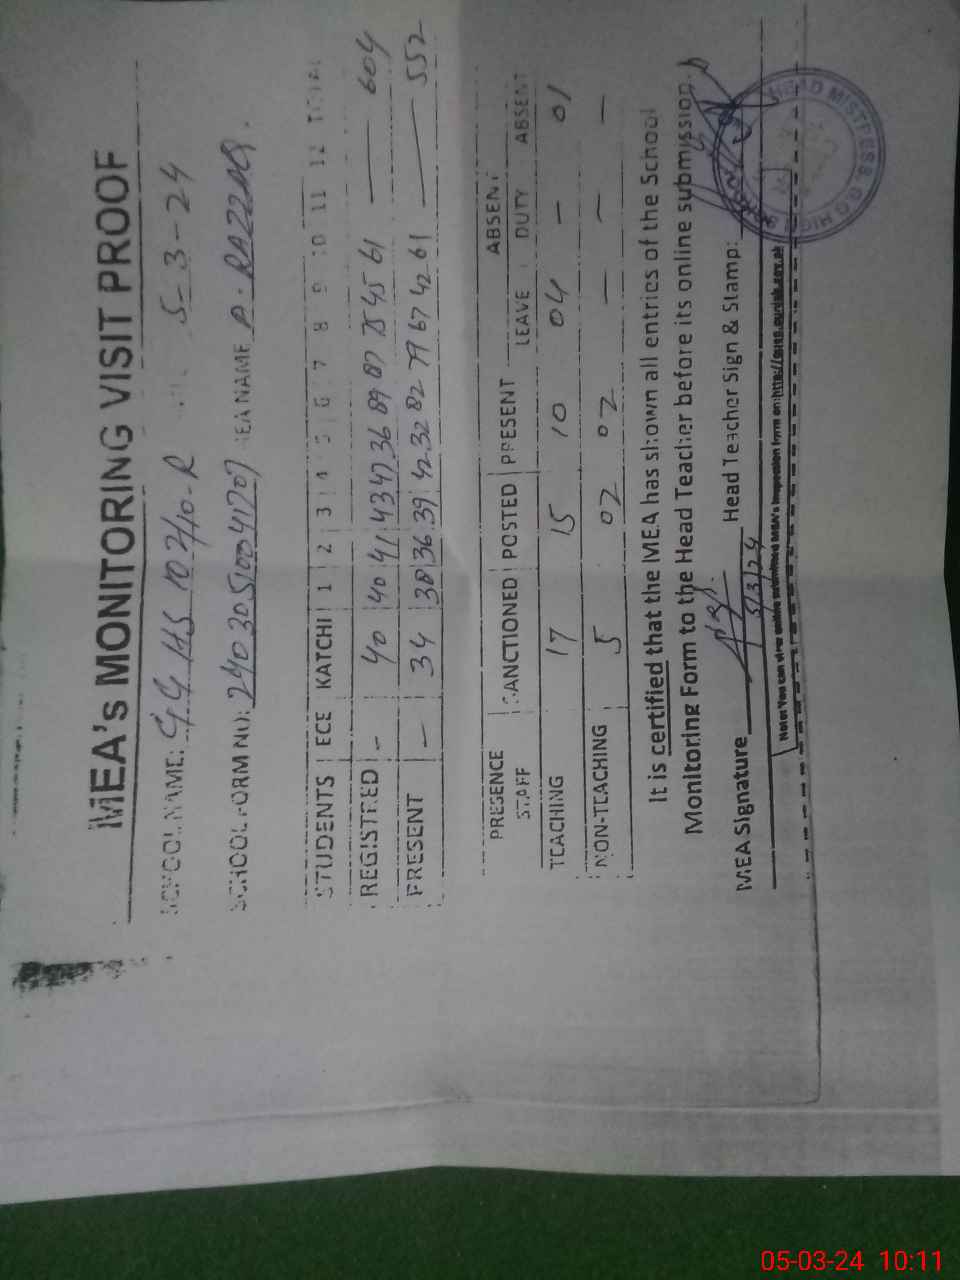 MEA's MONITORING VISIT PROOF
SCHOOL NAME: GGHS 102/10-R 5-3-24
SCHOOL FORM NO: MEA NAME A. RAZZAQ.
STUDENTS ECE KATCHI 1 2 3 4 5 6 7 8 9 10 11 12 TOTAL
REGISTERED - 40 40 41 43 47 36 89 87 75 45 61 — 604
PRESENT - 34 38 36 39 42 32 82 79 67 42 61 — 552
PRESENCE SANCTIONED POSTED PRESENT ABSENT
STAFF LEAVE DUTY ABSENT
TEACHING 17 15 10 04 - 01
NON-TEACHING 5 02 02 - - -
It is certified that the MEA has shown all entries of the School
Monitoring Form to the Head Teacher before its online submission.
MEA Signature 5/3/24 Head Teacher Sign & Stamp:
HEAD MISTRESS
Note: You can view online submitted MEA's Inspection Form on:
05-03-24 10:11